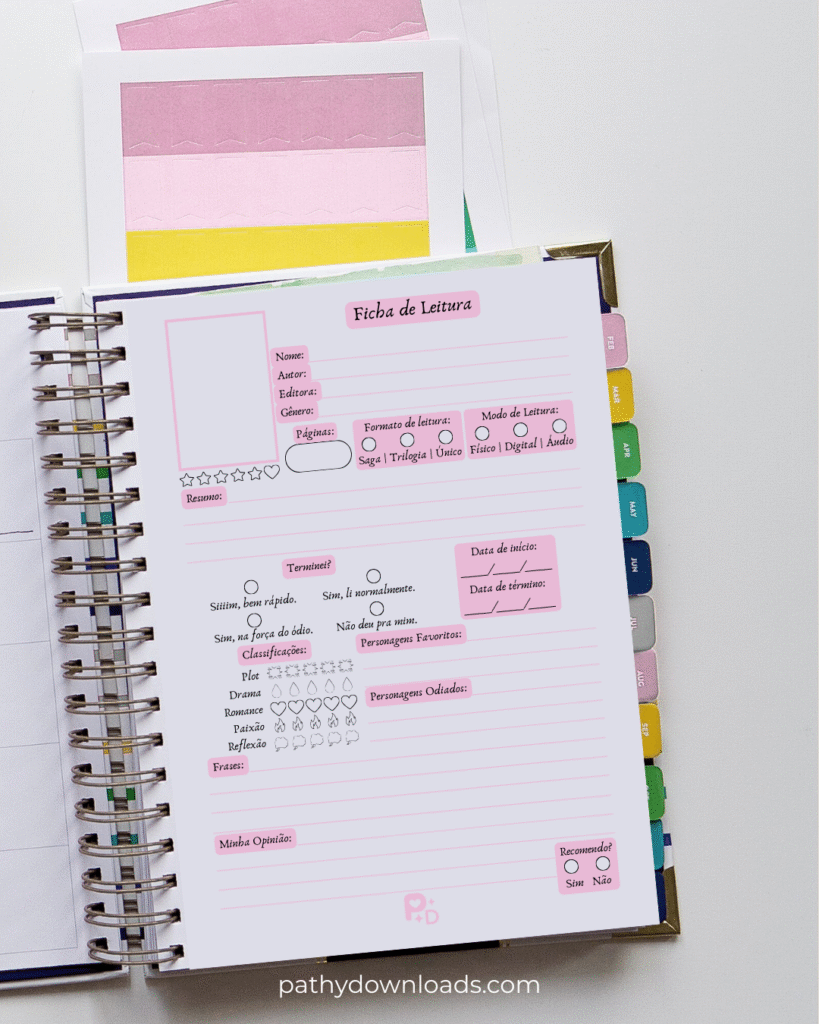 Ficha de Leitura
Nome:
Autor:
Editora:
Gênero:
Páginas:
Formato de leitura:
Saga | Trilogia | Único
Modo de Leitura:
Físico | Digital | Áudio
Resumo:
Terminei?
Siiiim, bem rápido.
Sim, li normalmente.
Sim, na força do ódio.
Não deu pra mim.
Data de início:
___/___/___
Data de término:
___/___/___
Classificações:
Plot
Drama
Romance
Paixão
Reflexão
Personagens Favoritos:
Personagens Odiados:
Frases:
Minha Opinião:
Recomendo?
Sim Não
P+D
FEB
MAR
APR
MAY
JUN
JUL
AUG
SEP
pathydownloads.com